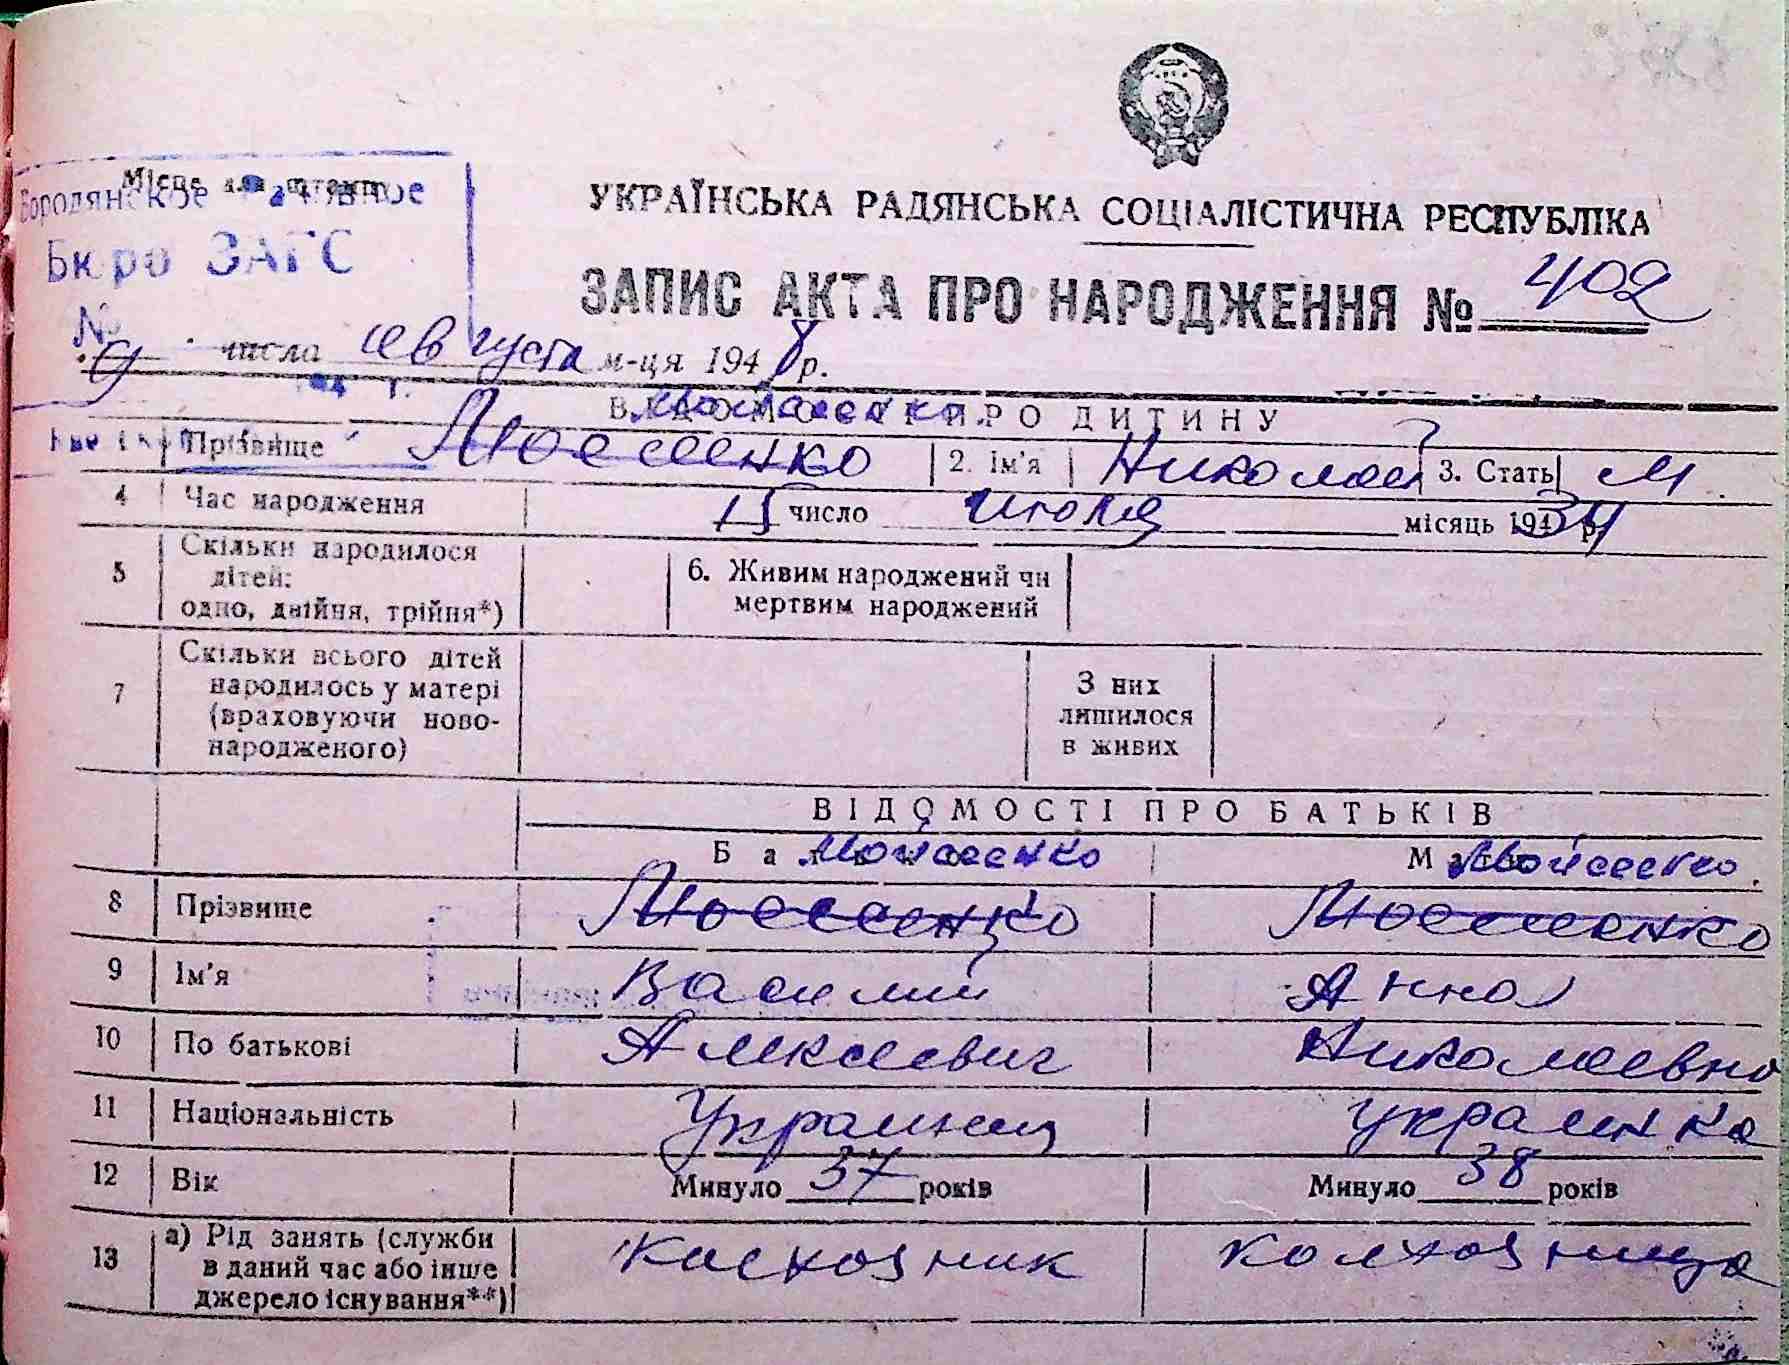 Місце для штампу
Бородянское районное
Бюро ЗАГС
№
УКРАЇНСЬКА РАДЯНСЬКА СОЦІАЛІСТИЧНА РЕСПУБЛІКА
ЗАПИС АКТА ПРО НАРОДЖЕННЯ № 402
9 числа августа м-ця 1948 р.
ВІДОМОСТІ ПРО ДИТИНУ
Мойсеенко
Прізвище Моисеенко 2. Ім'я Николай 3. Стать М.
4 Час народження 15 число июля місяць 1934 р.
5 Скільки народилося
дітей:
одно, двійня, трійня*)
6. Живим народжений чи
мертвим народжений
7 Скільки всього дітей
народилось у матері
(враховуючи ново-
народженого)
З них
лишилося
в живих
ВІДОМОСТІ ПРО БАТЬКІВ
Батько Мойсеенко Мати Мойсеенко.
8 Прізвище Моисеенко Моисеенко
9 Ім'я Василий Анна
10 По батькові Алексеевич Николаевна
11 Національність Украинец украинка
12 Вік Минуло 37 років Минуло 38 років
13 а) Рід занять (служби
в даний час або інше
джерело існування**)
колхозник колхозница